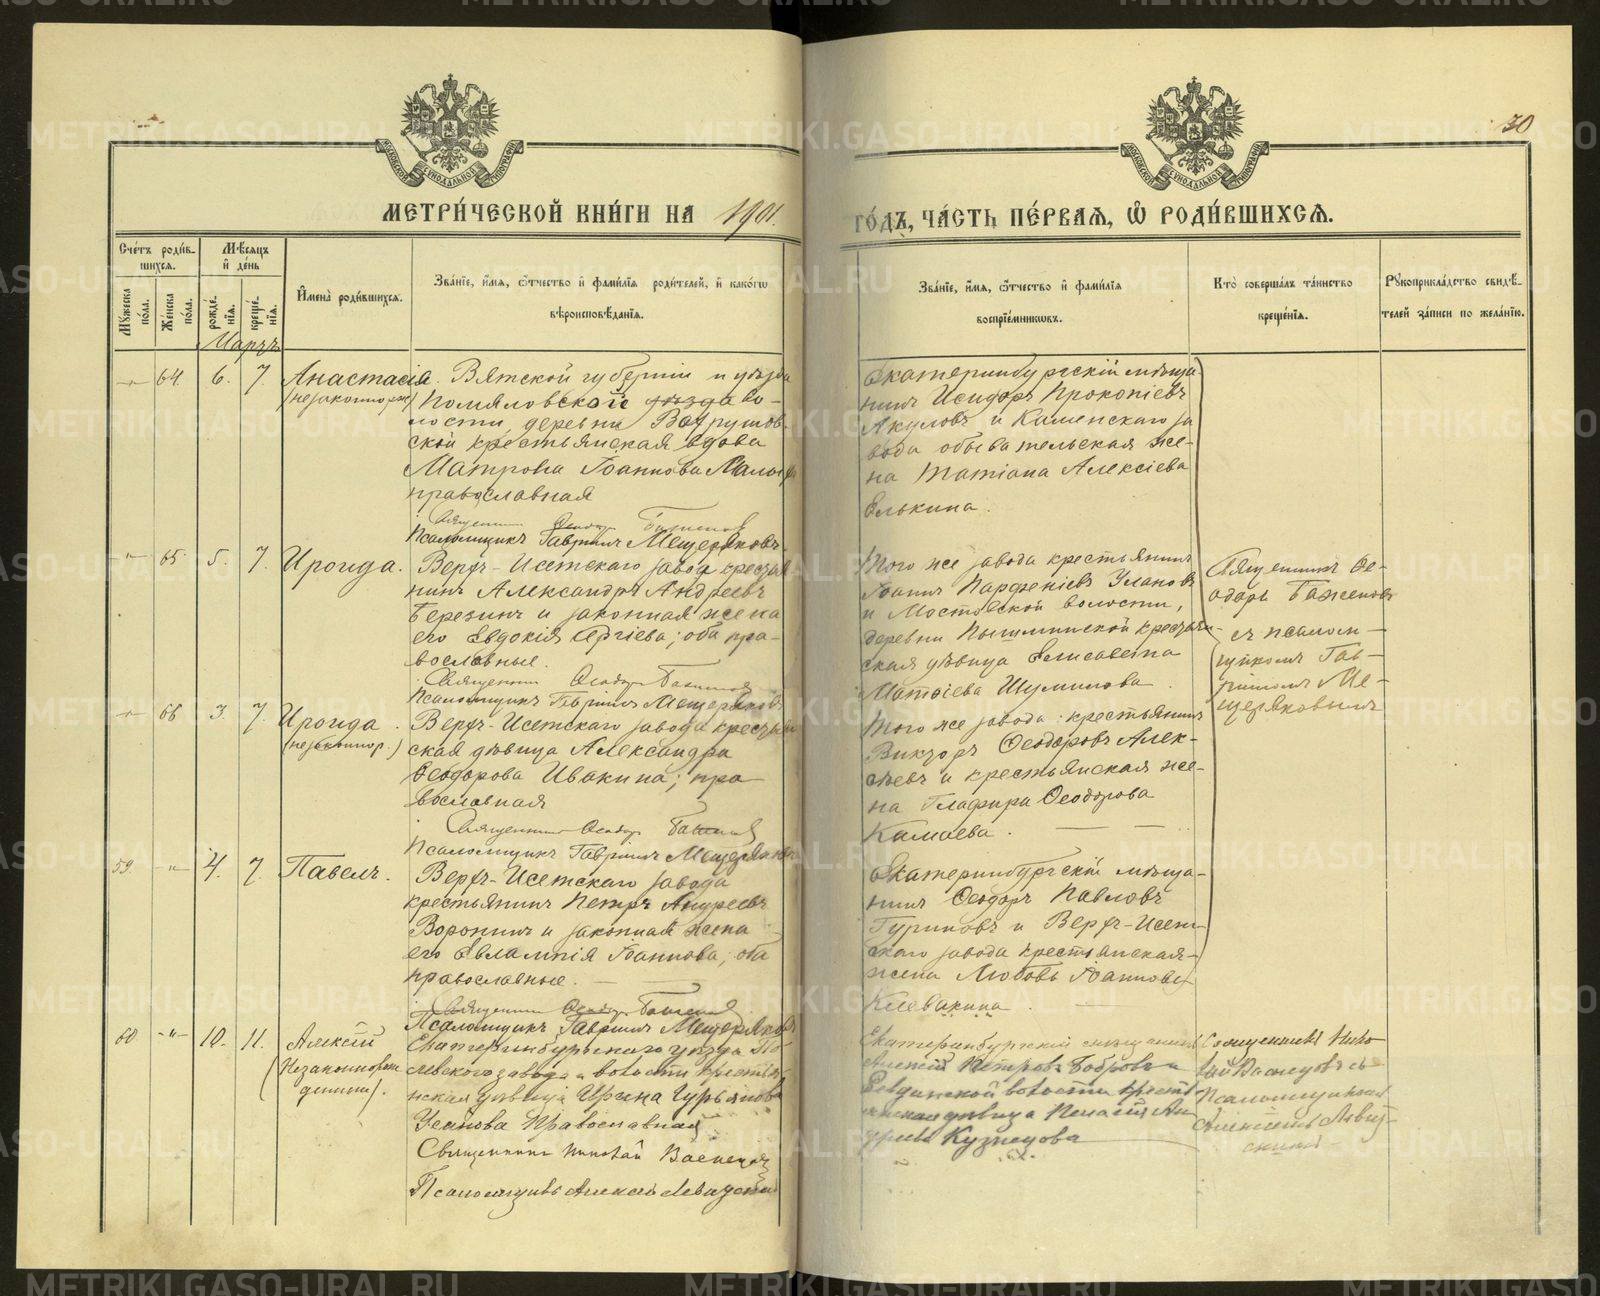 30
МЕТРИ́ЧЕСКОЙ КНИ́ГИ НА 1901
ГО́ДЪ, ЧА́СТЬ ПЕ́РВАѦ, Ѽ РОДИ́ВШИХСѦ.
Сче́тъ роди́в-
шихсѧ.
Мѣ́сѧцъ
и҆ де́нь
Мꙋ́жеска по́ла.
Же́нска по́ла.
рожде́-
нїѧ.
креще́-
нїѧ.
И҆мена̀ роди́вшихсѧ.
Зва́нїе, и҆́мѧ, ѻ҆́тчество и҆ фами́лїѧ роди́телей, и҆ како́гѡ
вѣроисповѣ́данїѧ.
Зва́нїе, и҆́мѧ, ѻ҆́тчество и҆ фами́лїѧ
воспрїе́мникѡвъ.
Кто̀ соверша́лъ та́инство
креще́нїѧ.
Рꙋкоприкла́дство свидѣ́-
телей за́писи по жела́нїю.
Мартъ
64. 6. 7. Анастасія
(незаконнорж)
Вятской губерніи и уѣзда
Помяловской уѣзда во-
лости деревни
ской крестьянская вдова
Матрона Іоаннова
православная
Священникъ Ѳеодоръ Баженов
Псаломщикъ Гавріилъ Мещеряковъ
Екатеринбургскій мѣща
нинъ Исидоръ Прокопіевъ
Акуловъ и Каменскаго за
вода обывательская же-
на Татіана Алексіева
Елькина.
65. 5. 7. Ироида.
Верхъ-Исетскаго завода крестья
нинъ Александръ Андреевъ
Березинъ и законная жена
его Евдокія Сергіева; оба пра-
вославные.
Священникъ Ѳеодоръ Баженов
Псаломщикъ Гавріилъ Мещеряковъ
Того же завода крестьянинъ
Іоаннъ Парѳеніевъ Улановъ
и Мостовской волости,
деревни Пышминской крестьян-
ская дѣвица Елисавета
Матѳіева Шумилова
Священникъ Ѳе-
одоръ Баженовъ
съ псалом-
щикомъ Гав-
ріиломъ Ме-
щеряковымъ
66 3. 7. Ироида.
(незаконнор.)
Верхъ-Исетскаго завода крестьян
ская дѣвица Александра
Ѳеодорова Ивакина; пра
вославная
Священникъ Ѳеодоръ Баженов
Псаломщикъ Гавріилъ Мещеряковъ
Того же завода: крестьянинъ
Викторъ Ѳеодоровъ Алек-
сѣевъ и крестьянская же-
на Глафира Ѳеодорова
Камаева.
59. 4. 7. Павелъ.
Верхъ-Исетскаго завода
крестьянинъ Петръ Андреевъ
Воронинъ и законная жена
его Евлампія Іоаннова; оба
православные.
Священникъ Ѳеодоръ Баженов
Псаломщикъ Гавріилъ Мещеряковъ
Екатеринбургскій мѣща-
нинъ Ѳеодоръ Павловъ
Гуриновъ и Верхъ-Исет-
скаго завода крестьянская
жена Любовь Іоаннова
Клевакина.
60 10. 11. Алексій
(Незаконнорож
денный).
Екатеринбургскаго уѣзда По
левскаго завода и волости крестья
нская дѣвица Ирина Гурьянова
Усанова Православная
Священникъ Николай
Псаломщикъ Алексѣй Левитскій
Екатеринбургскій мѣщанинъ
Алексій Петровъ Бобровъ и
Ревдинской волости крестья
нская дѣвица Пелагія Ан
дреева Кузнецова
Священникъ Нико
лай съ
Псаломщикомъ
Алексѣемъ Левит
скимъ